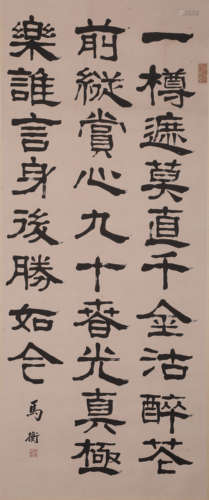 一樽遮莫直千金沽醉花
前縱賞心九十春光真極
樂誰言身後勝如今
馬衡